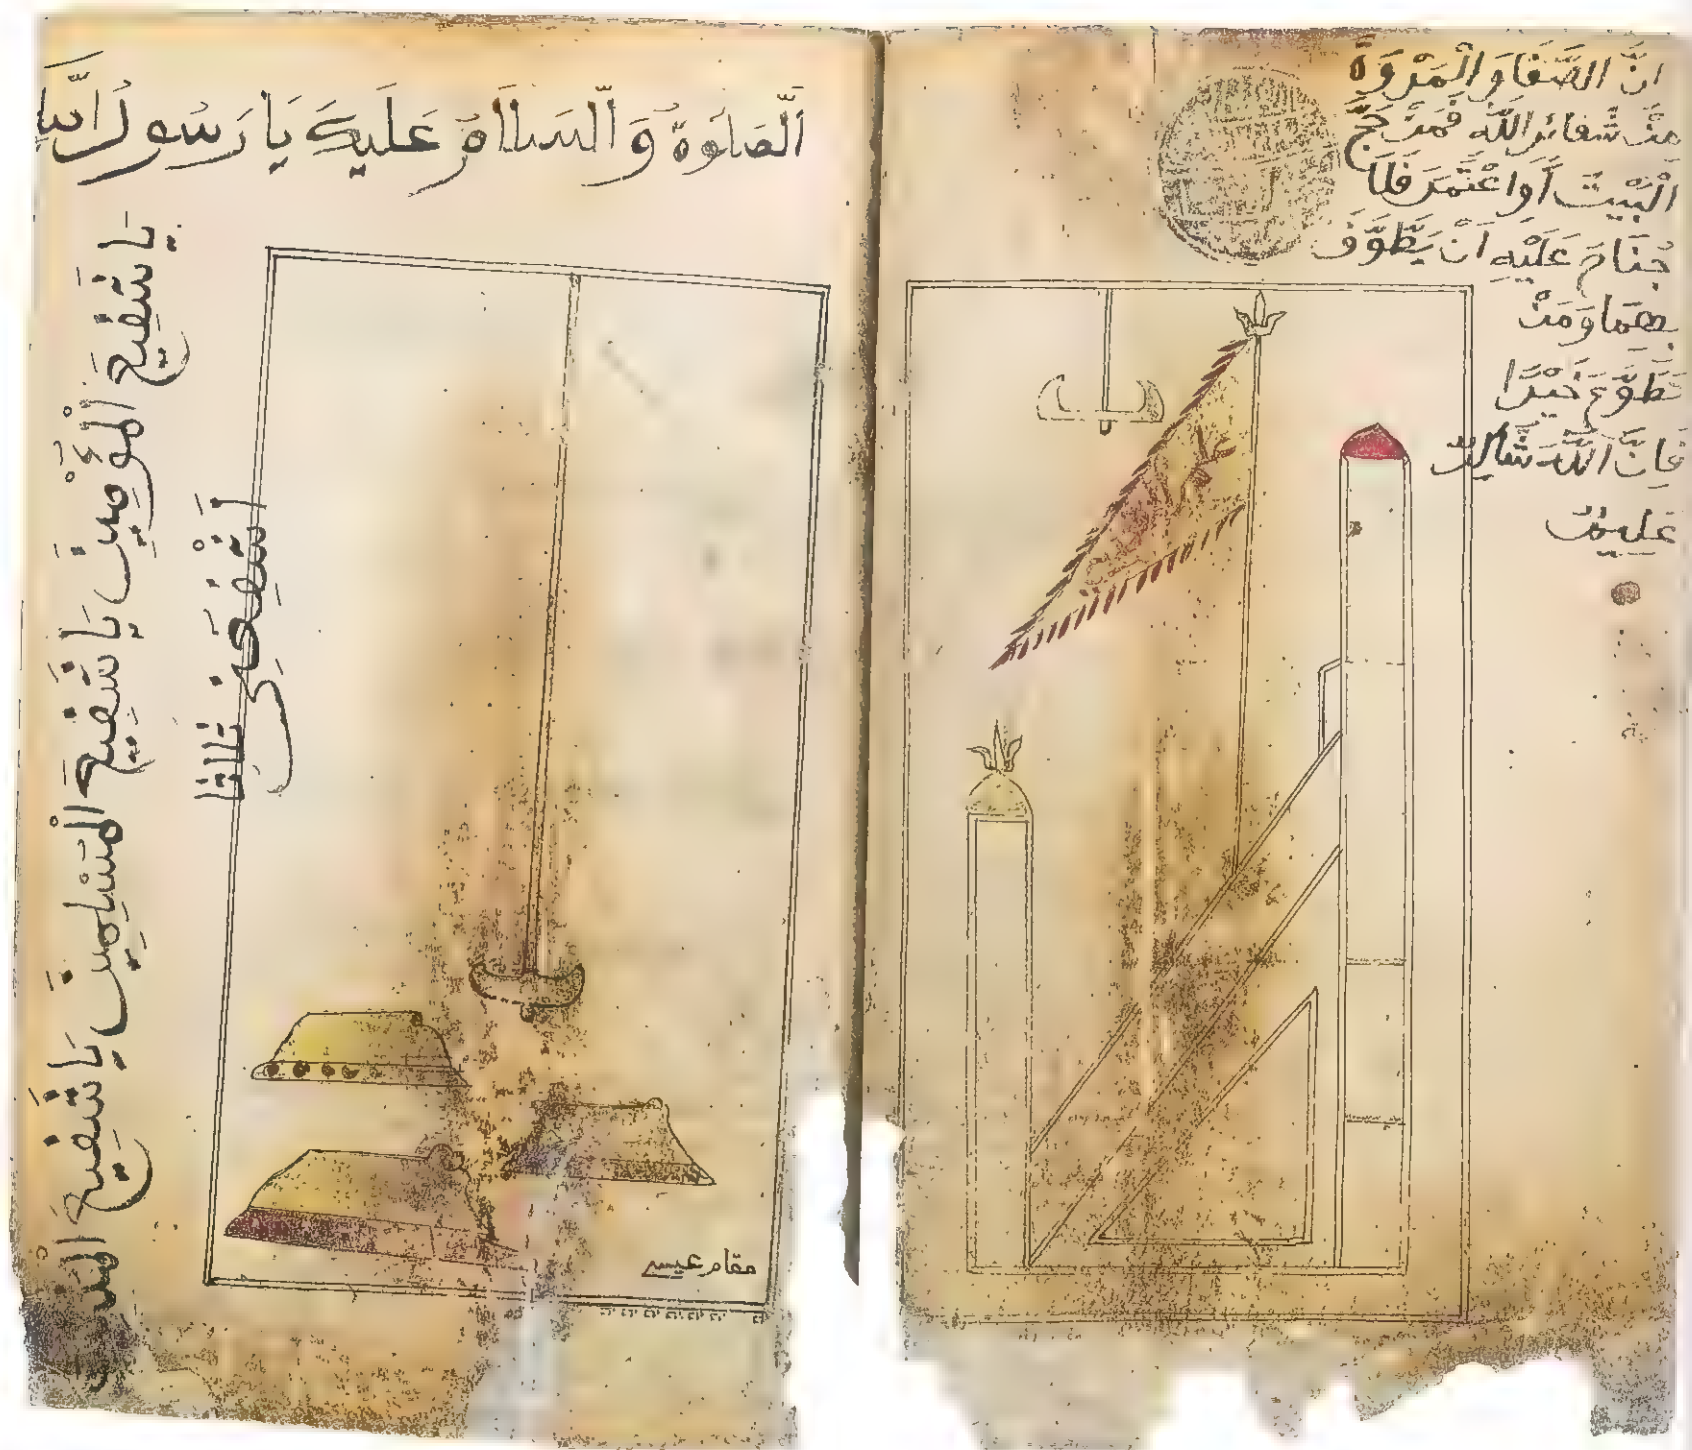 انَّ الصَّفَا وَالْمَرْوَةَ
مِنْ شَعَائِرِ اللَّهِ فَمَنْ حَجَّ
الْبَيْتَ أَوِ اعْتَمَرَ فَلَا
جُنَاحَ عَلَيْهِ اَنْ يَطَّوَّفَ
بِهِمَا وَمَنْ
تَطَوَّعَ خَيْرًا
فَاِنَّ اللَّهَ شَاكِرٌ
عَلِيمٌ
اَلصَّلوَةُ وَالسَلاَمُ عَلَيكَ يَا رَسُولَ
يَا شَفِيعَ الْمُؤْمِنِينَ يَا شَفِيعَ الْمُسْلِمِينَ يَا شَفِيعَ
اَشْفِعْنِي ثالثا
مقام عيسى